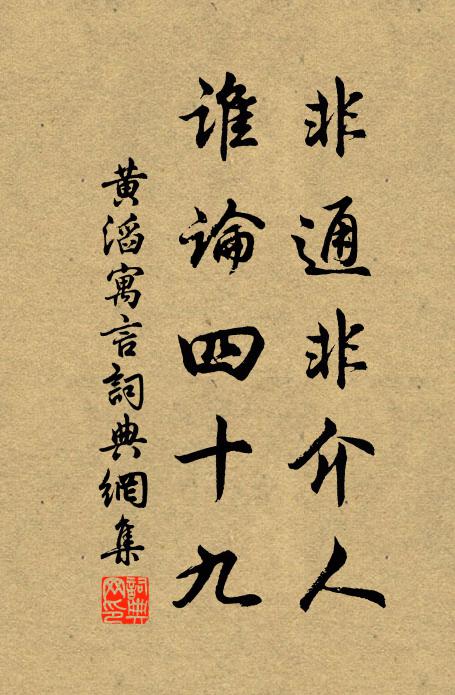 非通非介人
誰論四十九
黃滔寓言詞典網集
詞典网印